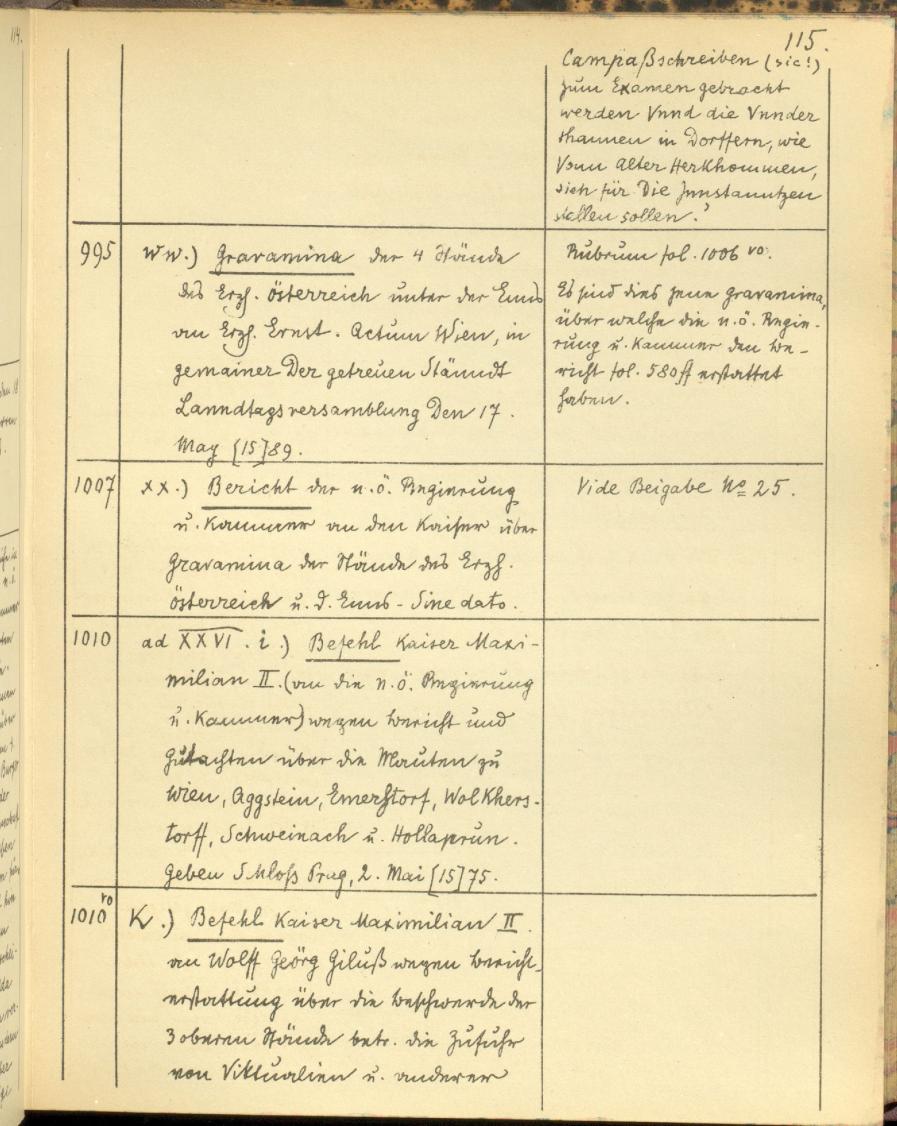 115.
Campaßschreiben (sic!)
zum Examen gebracht
werden Vnnd die Vnnder
thannen in Dorffern, wie
Vonn Alter Herkhommen,
sich für Die Innstanntzen
stellen sollen.'
995 ww.) Gravamina der 4 Stände
des Erzh. Österreich unter der Enns
an Erzh. Ernst. Actum Wien, in
gemainer Der getreuen Stänndt
Lanndtagsversamblung Den 17.
May [15]89.
Rubrum fol. 1006 vo.
Es sind dies jene Gravamina,
über welche die n.ö. Regie-
rung u. Kammer den Be-
richt fol. 580 ff erstattet
haben.
1007 xx.) Bericht der n.ö. Regierung
u. Kammer an den Kaiser über
Gravamina der Stände des Erzh.
Österreich u. d. Enns - Sine dato.
Vide Beigabe No 25.
1010 ad XXVI. i.) Befehl Kaiser Maxi-
milian II. (an die n.ö. Regierung
u. Kammer) wegen Bericht und
Gutachten über die Mauten zu
Wien, Aggstein, Emerstorf, Wolkhers-
torff, Schweinach u. Hollaprun.
Geben Schloß Prag, 2. Mai [15]75.
1010 vo K.) Befehl Kaiser Maximilian II.
an Wolff Geörg Giluß wegen Bericht-
erstattung über die Beschwerde der
3 oberen Stände betr. die Zufuhr
von Viktualien u. anderer